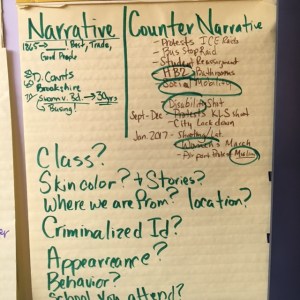 Narrative
Counter Narrative
1865 → Best, Trade,
Good People
D. Counts
Brookshire
Swann v. Bd. → 30 yrs
↳ Busing!
- Protests ICE Raids
- Bus Stop Raid
- Student
- HB2 Bathrooms
- Social Mobility
- Disability Shot
Sept-Dec Protests KLS school
- City Lockdown
Jan. 2017 -
- Women's March
- Airport Muslim
Class?
Skin color? + Stories?
Where we are from? location?
Criminalized Id?
Appearreance?
Behavior?
School you attend?